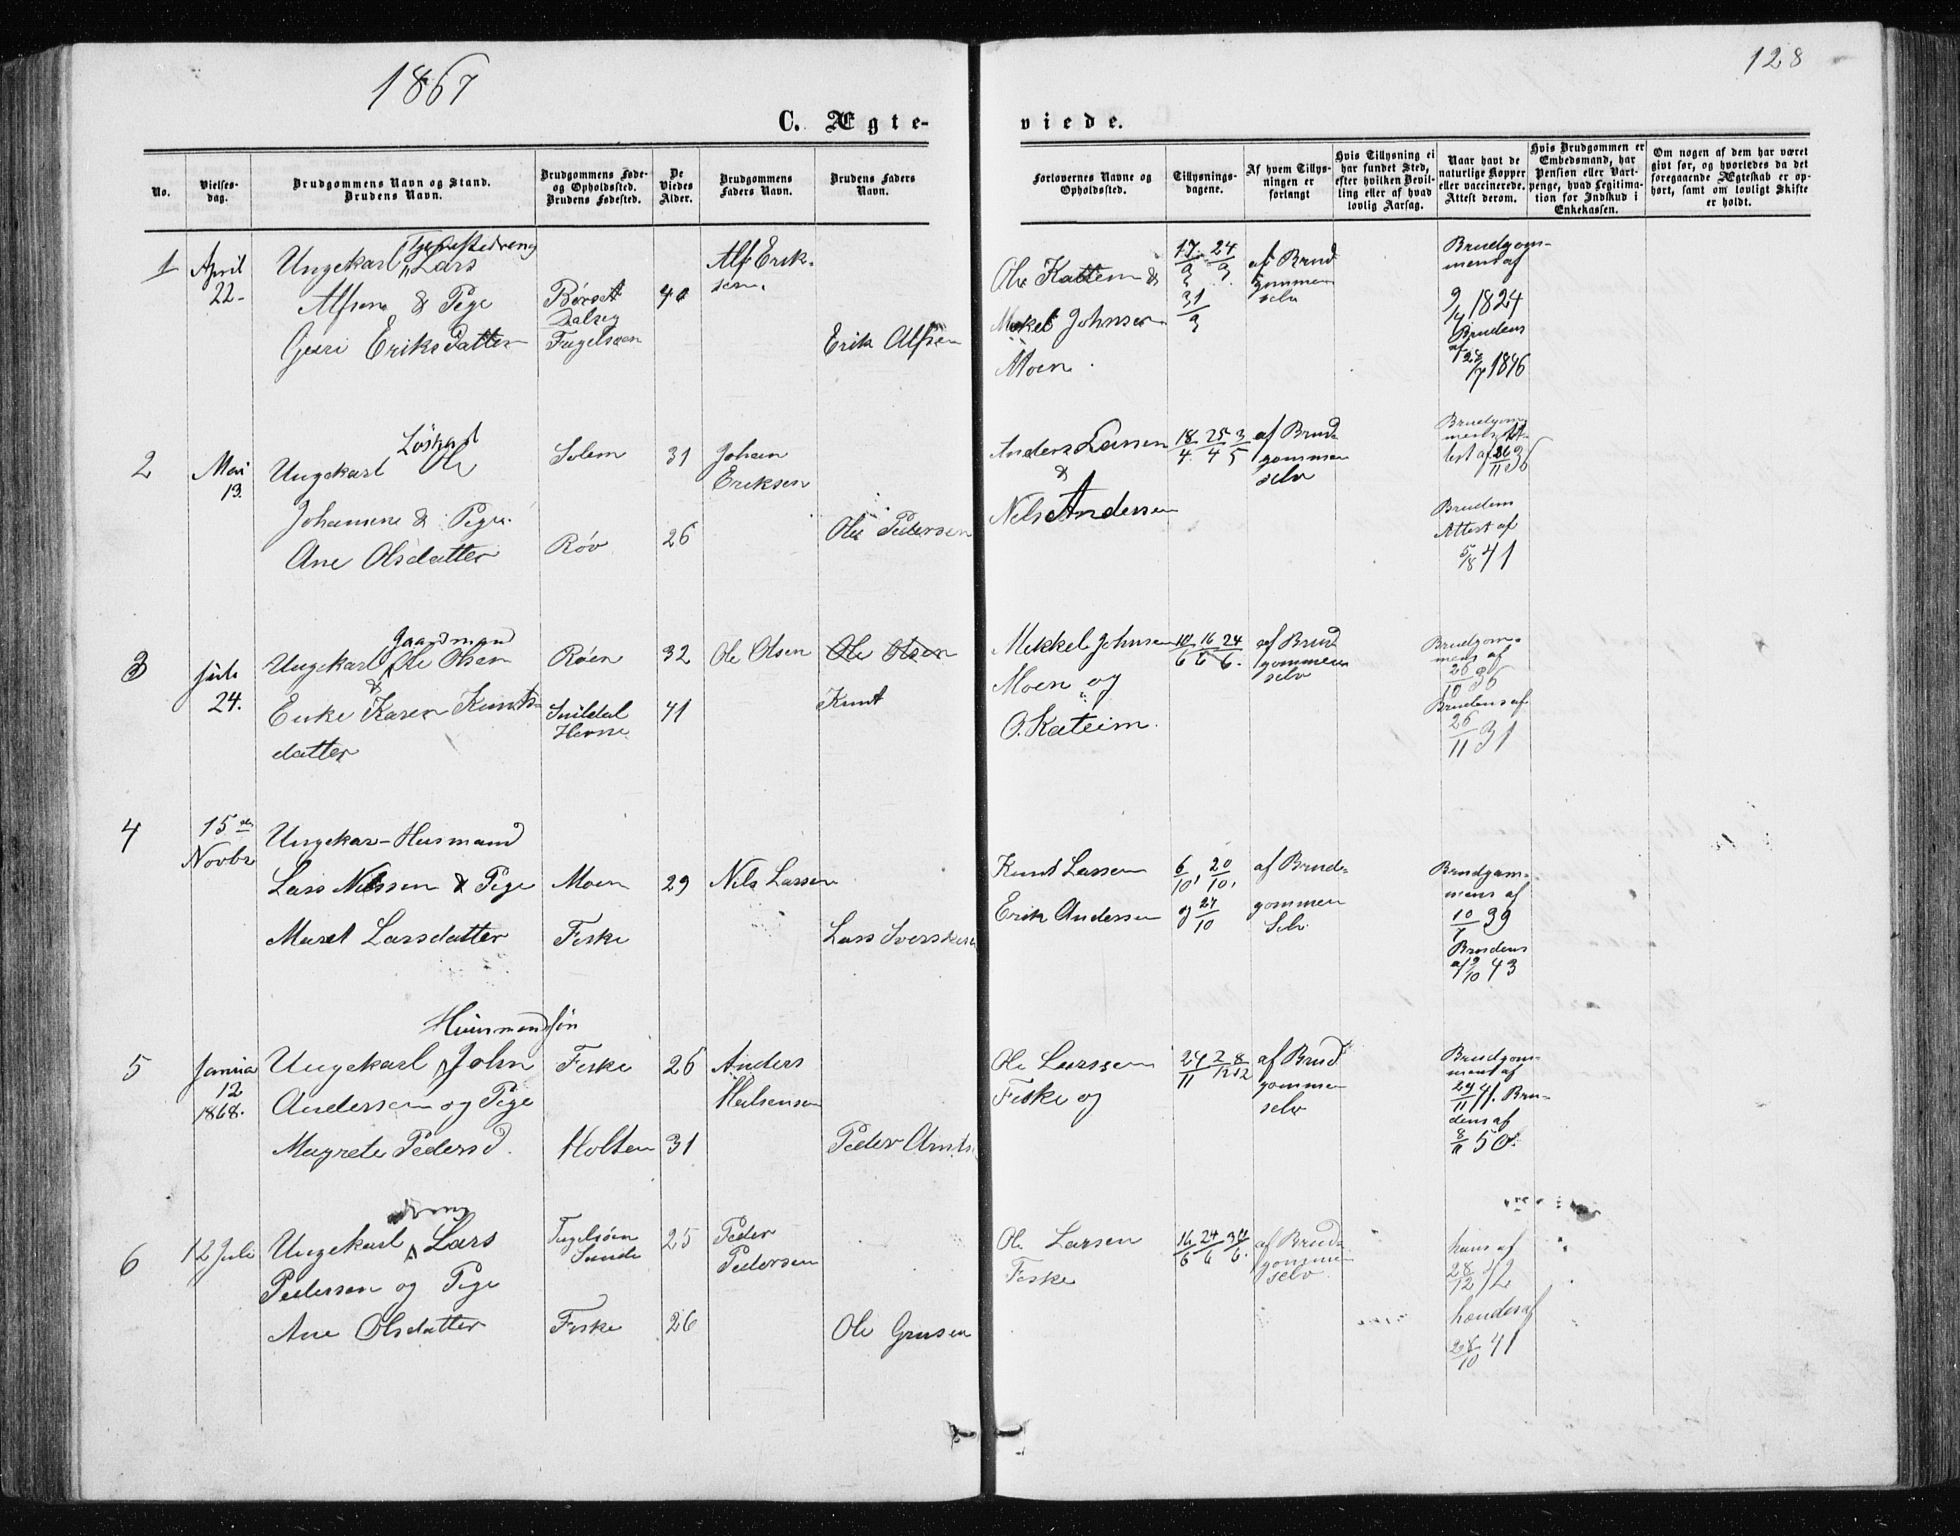 1867
128
C. Ægte-
viede.
No.
Vielses-
dag.
Brudgommens Navn og Stand.
Brudens Navn.
Brudgommens Føde-
og Opholdssted.
Brudens Fødested.
De
Viedes
Alder.
Brudgommens
Faders Navn.
Brudens Faders
Navn.
Forlovernes Navne og
Opholdssted.
Tillysnings-
dagene.
Af hvem Tillys-
ningen er
forlangt
Hvis Tillysning ei
har fundet Sted,
efter hvilken Bevil-
ling eller af hvad
lovlig Aarsag.
Naar havt de
naturlige Kopper
eller vaccinerede.
Attest derom.
Hvis Brudgommen er
Embedsmand, har
Pension eller Vart-
penge, hvad Legitima-
tion for Indskud i
Enkekassen.
Om nogen af dem har været
givt før, og hvorledes da det
foregaaende Ægteskab er op-
hørt, samt om lovligt Skifte
er holdt.
1
April
22
Ungekarl Lars
Alfsen & Pige
Guri Eriksdatter
Børset
Fugelsøen
40
Alf Erik-
sen.
Erik Alfsen
Ole Kattem &
Mekel Johnsen
Moen
17/3 24/3
31/3
af Brud
gommen
selv
Brudgom-
mens af
9/4 1824
Brudens
af
28/7 1846
2
Mai
13.
Løskarl
Ungekarl Ole
Johansen & Pige
Ane Olsdatter
Solem
Røv
31
26
Johan
Eriksen
Ole Pedersen
Anders Larsen
&
Nels Andersen
18/4 25/4 3/5
af Brud
gommen
selv
Brudgom
mens At-
test af 26/11 36
Brudens
Attest af
5/8 41
3
Juli
24.
Gaardmand
Ungekarl Ole Olsen
&
Enke Karen Knuts-
datter
Røen
Snildal
Hevne
32
41
Ole Olsen
Ole Olsen
Knut
Mekkel Johnsen
Moen og
O. Kateim.
10/6 16/6 24/6.
af Brud
gommen
selv
Brudgom-
mens af
26/10 36
Brudens af
26/11 31
4
15de
Novbr
Ungekar-Husmand
Lars Nilssen & Pige
Maret Larsdatter
Moen
Feske
29
Nils Larsen
Lars Sversken
Knud Larsen
Erik Andersen
6/10, 20/10,
og 27/10
af Brude-
gommen
Selv
Brudgom-
mens af
10/7 39
Brudens
af 9/10 43
5
Januar
12
1868.
Husmandsøn
Ungekarl John
Andersen og Pige
Magrete Pedersd.
Feske
Holten
26
31
Anders
Halsensen
Peder Arnts
Ole Larssen
Feske og
24/11 2/12 8/12
af Brud
gommen
selv
Brudgom-
mens af
29/11 41. Bru-
dens af
8/11 50.
6
12 Juli
dreng
Ungekarl Lars
Pedersen og Pige
Ane Olsdatter
Fugelsøen
Sunde
Feske
25
26
Peder
Pedersen
Ole Grusen
Ole Larsen
Feske
16/6 24/6 30/6.
af Brud
gommen
selv
hans af
28/12 42
hendes af
28/10 41